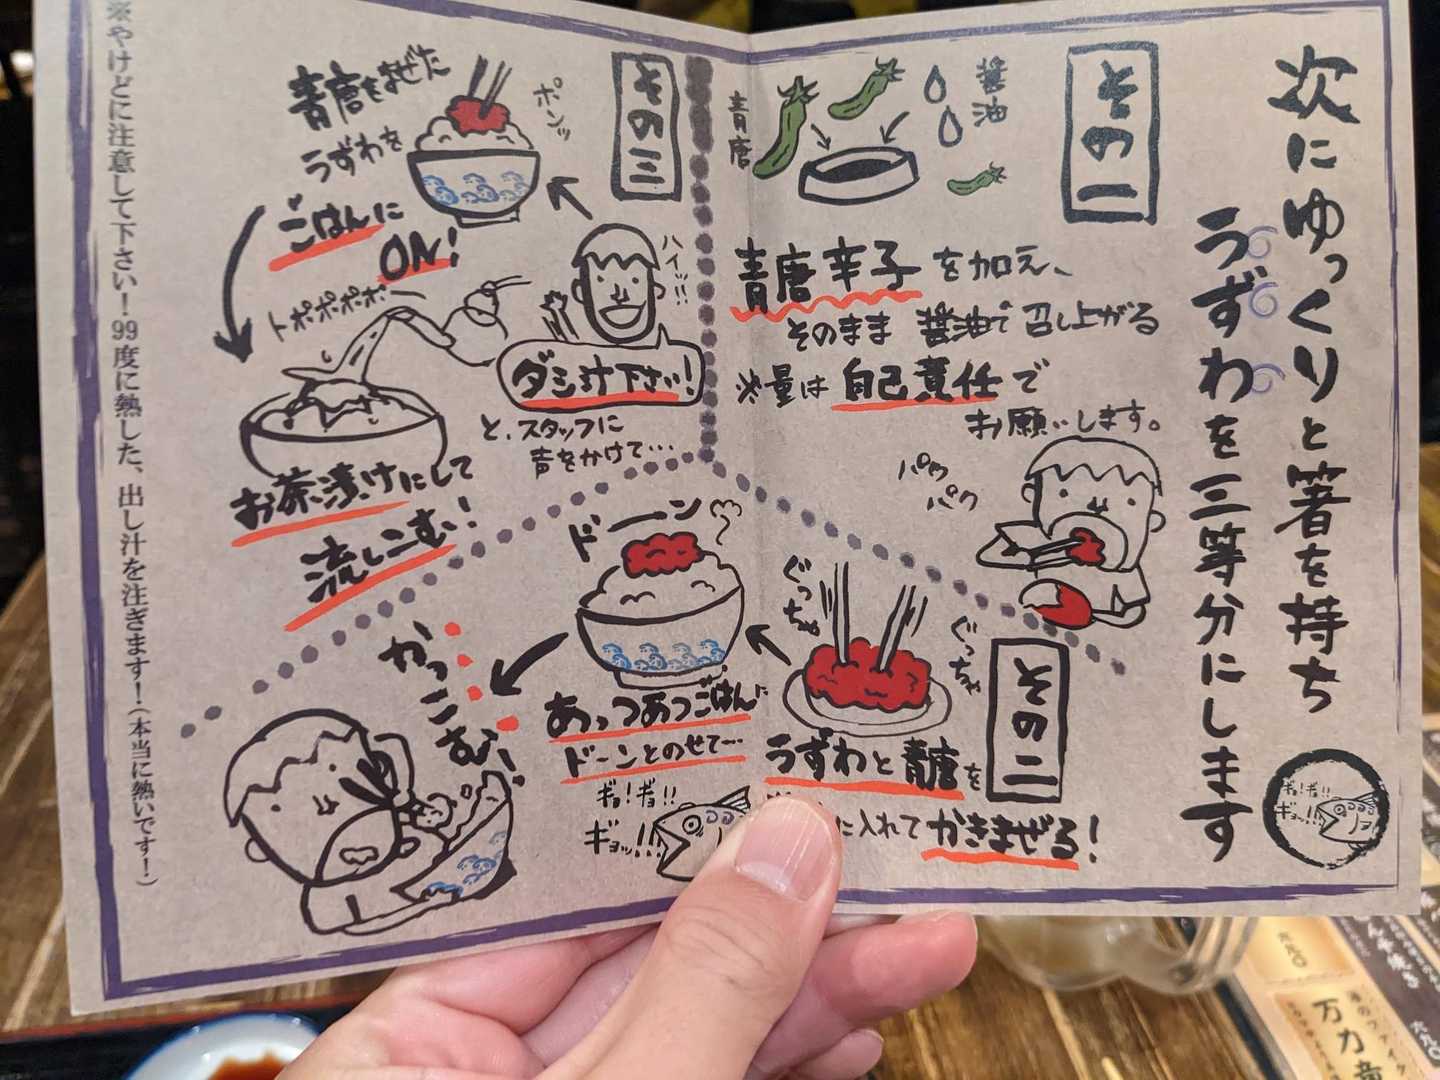 次にゆっくりと箸を持ち
うずわを三等分にします
その一
醤油
青唐
青唐辛子を加え、
そのまま醤油で召し上がる
※量は自己責任で
お願いします。
パク
パク
その二
ぐっちゃ
ぐっちゃ
うずわと青唐を
に入れてかきまぜる!
ドーン
あっつあつごはんに
ドーンとのせて…
かっこむ!
ギョ!ギョ!!
ギョッ!!!
ギョ!ギョ!!
ギョッ!!!
その三
ハイッ!!
ダシ汁下さい!
と、スタッフに
声をかけて…
ポンッ
青唐をまぜた
うずわを
ごはんに
ON!
トポポポポ
お茶漬けにして
流しこむ!
※やけどに注意して下さい!99度に熱した、出し汁を注ぎます!(本当に熱いです!)